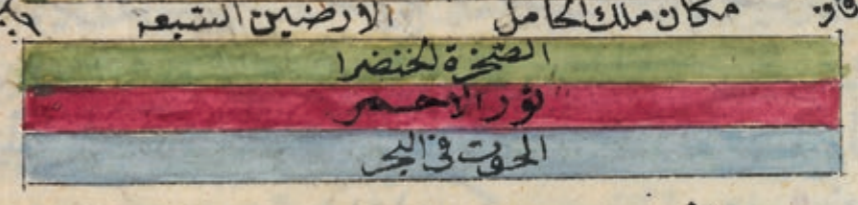 مكان ملك الحامل الارضين السبعه
الصخرة الخضرا
ثور الاحمر
الحوت في البحر